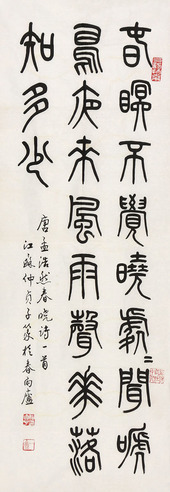 春眠不覺曉處〻聞啼
鳥夜來風雨聲華落
知多少
唐孟浩然春曉詩一首
江蘇仲貞子篆於春雨廬